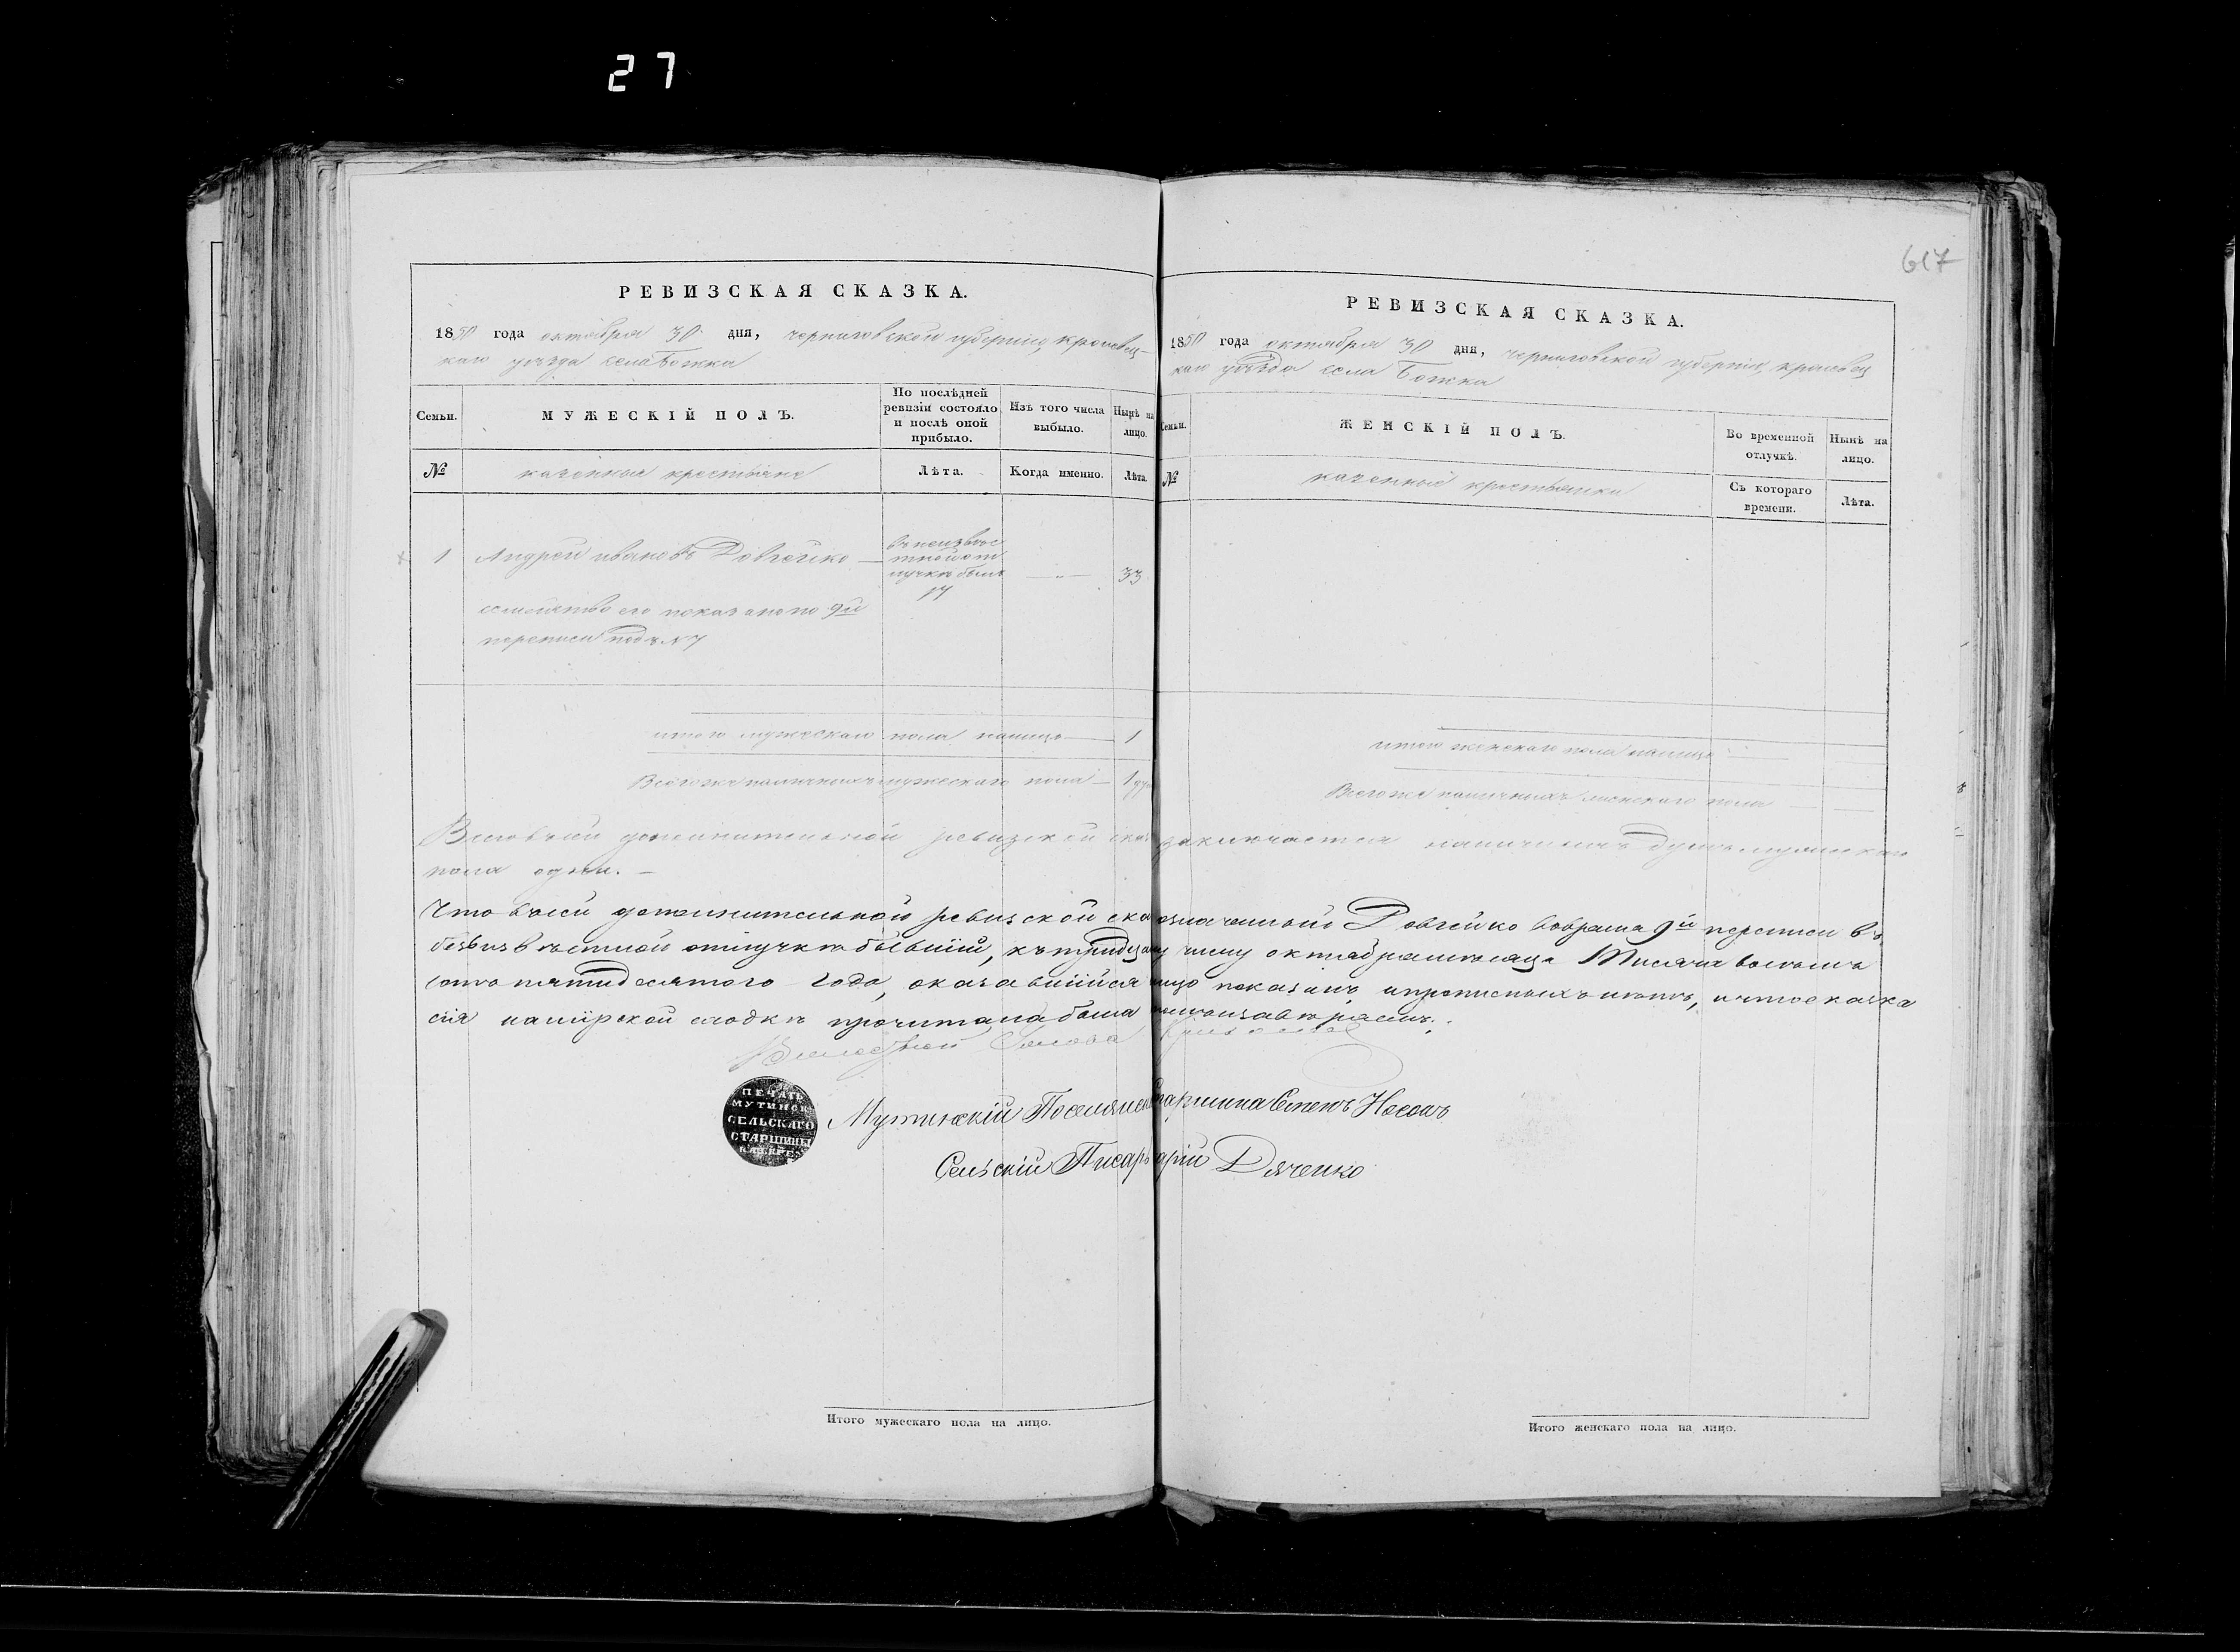 27
617
РЕВИЗСКАЯ СКАЗКА.
1850 года октября 30 дня, черниговской губернии, кролевец-
каго уѣзда села Божка
Семьи.
МУЖЕСКІЙ ПОЛЪ.
По послѣдней ревизіи состояло и послѣ оной прибыло.
Изъ того числа выбыло.
Нынѣ на лицо.
№
казенныя крестьяне
Лѣта.
Когда именно.
Лѣта.
1 Андрей ивановъ Довгейко
въ неизвѣс
тной от
лучкѣ былъ
17
33
семейство его показано по 9й
переписи подъ №7
итого мужескаго пола налицо 1
Всегоже наличныхъ мужескаго пола 1
РЕВИЗСКАЯ СКАЗКА.
1850 года октября 30 дня, черниговской губерніи, кролевец
каго уѣзда села Божка
Семьи.
ЖЕНСКІЙ ПОЛЪ.
Во временной отлучкѣ.
Нынѣ на лицо.
№
казенные крестьянки
Съ котораго времени.
Лѣта.
итого женскаго пола налицо
Всегоже наличныхъ женскаго пола
дополнительной ревизской заключается наличныхъ душъ мужескаго
пола одна.
Что въ сей дополнительной ревизской ска означенный Довгейко вовремя 9й переписи въ
безвизвѣстной отлучкѣ бывший, къ тридцатому числу октября мѣсяца Тысяча восемь
сотъ пятидесятого года, оказавшийся показанъ, и прописныхъ нѣтъ, и что сказка
сія на мірской сходкѣ прочитана была
Голова
ПЕЧАТЬ
МУТИНСК
СЕЛЬСКАГО
СТАРШИНЫ
Мутинскій Старшина Семенъ Носовъ
Сельскій Писарь Дяченко
Итого мужескаго пола на лицо.
Итого женскаго пола на лицо.